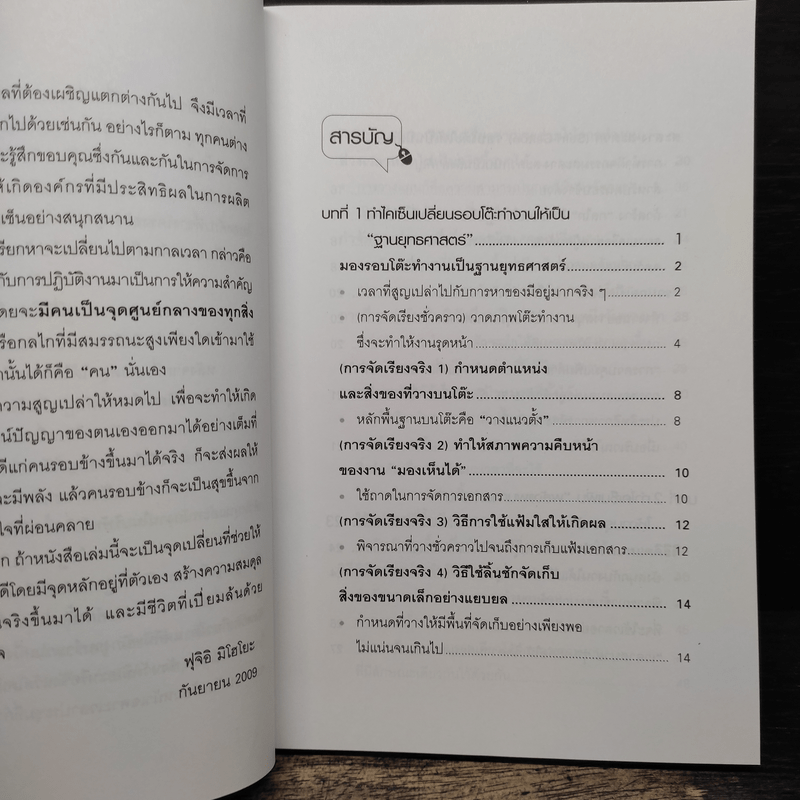 ลที่ต้องเผชิญแตกต่างกันไป จึงมีเวลาที่
กไปด้วยเช่นกัน อย่างไรก็ตาม ทุกคนต่าง
ะรู้สึกขอบคุณซึ่งกันและกันในการจัดการ
ห้เกิดองค์กรที่มีประสิทธิผลในการผลิต
เซ็นอย่างสนุกสนาน
รียกหาจะเปลี่ยนไปตามกาลเวลา กล่าวคือ
กับการปฏิบัติงานมาเป็นการให้ความสำคัญ
ดยจะมีคนเป็นจุดศูนย์กลางของทุกสิ่ง
รือกลไกที่มีสมรรถนะสูงเพียงใดเข้ามาใช้
านั้นได้ก็คือ “คน” นั่นเอง
วามสูญเปล่าให้หมดไป เพื่อจะทำให้เกิด
น์ปัญญาของตนเองออกมาได้อย่างเต็มที่
ดีแก่คนรอบข้างขึ้นมาได้จริง ก็จะส่งผลให้
ะมีพลัง แล้วคนรอบข้างก็จะเป็นสุขขึ้นจาก
ใจที่ผ่อนคลาย
ก ถ้าหนังสือเล่มนี้จะเป็นจุดเปลี่ยนที่ช่วยให้
ดีโดยมีจุดหลักอยู่ที่ตัวเอง สร้างความสมดุล
นจริงขึ้นมาได้ และมีชีวิตที่เปี่ยมล้นด้วย
จ
ฟุจิอิ มิโฮโยะ
กันยายน 2009
สารบัญ
บทที่ 1 ทำไคเซ็นเปลี่ยนรอบโต๊ะทำงานให้เป็น
“ฐานยุทธศาสตร์”..................................................... 1
มองรอบโต๊ะทำงานเป็นฐานยุทธศาสตร์............................ 2
• เวลาที่สูญเปล่าไปกับการหาของมีอยู่มากจริง ๆ................ 2
• (การจัดเรียงชั่วคราว) วาดภาพโต๊ะทำงาน
ซึ่งจะทำให้งานรุดหน้า................................................ 4
(การจัดเรียงจริง 1) กำหนดตำแหน่ง
และสิ่งของที่วางบนโต๊ะ................................................ 8
• หลักพื้นฐานบนโต๊ะคือ “วางแนวตั้ง”............................ 8
(การจัดเรียงจริง 2) ทำให้สภาพความคืบหน้า
ของงาน “มองเห็นได้”.................................................. 10
• ใช้ถาดในการจัดการเอกสาร........................................ 10
(การจัดเรียงจริง 3) วิธีการใช้แฟ้มใสให้เกิดผล................ 12
• พิจารณาที่วางชั่วคราวไปจนถึงการเก็บแฟ้มเอกสาร........ 12
(การจัดเรียงจริง 4) วิธีใช้ลิ้นชักจัดเก็บ
สิ่งของขนาดเล็กอย่างแยบยล........................................ 14
• กำหนดที่วางให้มีพื้นที่จัดเก็บอย่างเพียงพอ
ไม่แน่นจนเกินไป........................................................ 14